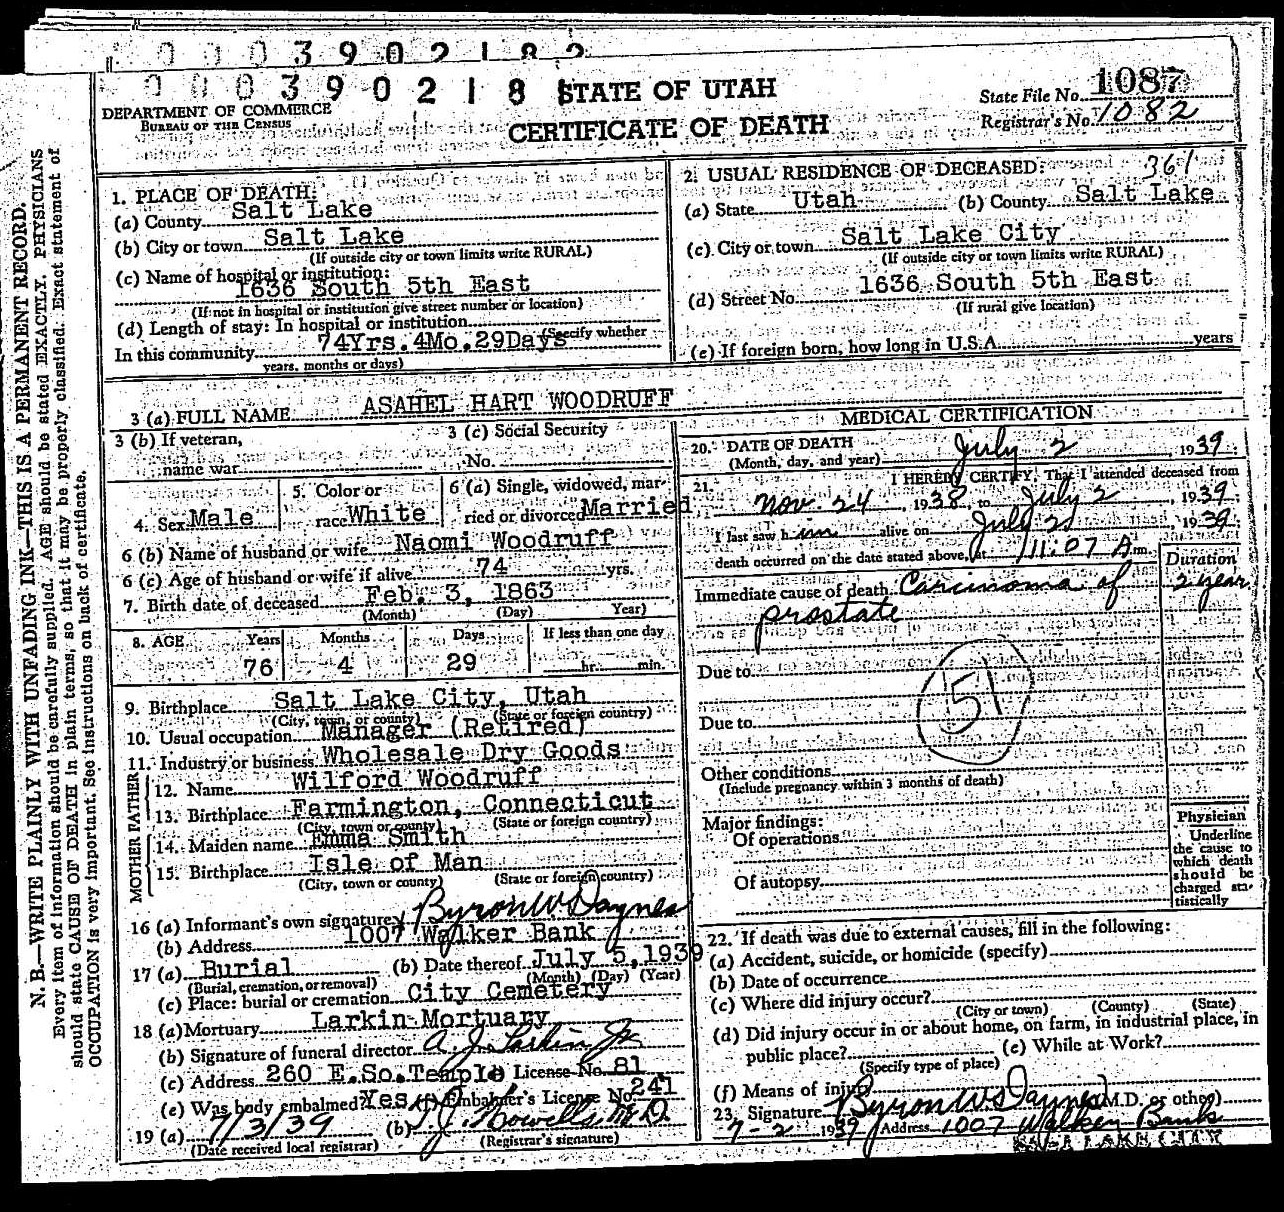 0 0 0 3 9 0 2 1 8 2
0 0 0 3 9 0 2 1 8
STATE OF UTAH
CERTIFICATE OF DEATH
DEPARTMENT OF COMMERCE
BUREAU OF THE CENSUS
State File No. 1087
Registrar's No. 1082
N. B.—WRITE PLAINLY WITH UNFADING INK—THIS IS A PERMANENT RECORD.
Every item of information should be carefully supplied. AGE should be stated EXACTLY. PHYSICIANS
should state CAUSE OF DEATH in plain terms, so that it may be properly classified. Exact statement of
OCCUPATION is very important. See instructions on back of certificate.
1. PLACE OF DEATH:
(a) County Salt Lake
(b) City or town Salt Lake
(If outside city or town limits write RURAL)
(c) Name of hospital or institution:
1636 South 5th East
(If not in hospital or institution give street number or location)
(d) Length of stay: In hospital or institution
(Specify whether
In this community 74Yrs.4Mo.29Days
years, months or days)
2. USUAL RESIDENCE OF DECEASED: 361
(a) State Utah (b) County Salt Lake
(c) City or town Salt Lake City
(If outside city or town limits write RURAL)
(d) Street No. 1636 South 5th East
(If rural give location)
(e) If foreign born, how long in U.S.A. years
3 (a) FULL NAME ASAHEL HART WOODRUFF
3 (b) If veteran, 3 (c) Social Security
name war No.
4. Sex Male 5. Color or race White 6 (a) Single, widowed, married or divorced Married
6 (b) Name of husband or wife Naomi Woodruff
6 (c) Age of husband or wife if alive 74 yrs.
7. Birth date of deceased Feb. 3, 1863
(Month) (Day) Year)
8. AGE Years Months Days If less than one day
76 4 29 hr. min.
9. Birthplace Salt Lake City, Utah
(City, town, or county) (State or foreign country)
10. Usual occupation Manager (Retired)
11. Industry or business Wholesale Dry Goods
FATHER
12. Name Wilford Woodruff
13. Birthplace Farmington, Connecticut
(City, town or county) (State or foreign country)
MOTHER
14. Maiden name Emma Smith
15. Birthplace Isle of Man
(City, town or county) (State or foreign country)
16 (a) Informant's own signature Byron W Daynes
(b) Address 1007 Walker Bank
17 (a) Burial (b) Date thereof July 5, 1939
(Burial, cremation, or removal) (Month) (Day) (Year)
(c) Place: burial or cremation City Cemetery
18 (a) Mortuary Larkin Mortuary
(b) Signature of funeral director A. J. Larkin Jr
(c) Address 260 E.So.Temple License No. 81
(e) Was body embalmed? Yes (f) Embalmer's License No. 241
19 (a) 7/3/39 (b) J. Howells M.D.
(Date received local registrar) (Registrar's signature)
MEDICAL CERTIFICATION
20. DATE OF DEATH July 2 1939
(Month, day, and year)
21. I HEREBY CERTIFY, That I attended deceased from
Nov. 24, 1938, to July 2, 1939;
I last saw him alive on July 2, 1939;
death occurred on the date stated above, at 11:07 A m.
Duration
Immediate cause of death Carcinoma of 2 year
prostate
Due to
51
Due to
Other conditions
(Include pregnancy within 3 months of death)
Major findings:
Of operations
Of autopsy
Physician
Underline
the cause to
which death
should be
charged sta-
tistically
22. If death was due to external causes, fill in the following:
(a) Accident, suicide, or homicide (specify)
(b) Date of occurrence
(c) Where did injury occur?
(City or town) (County) (State)
(d) Did injury occur in or about home, on farm, in industrial place, in
public place? (e) While at Work?
(Specify type of place)
(f) Means of injury
23. Signature Byron W. Daynes (M.D. or other)
7-2 1939 Address 1007 Walker Bank
SALT LAKE CITY